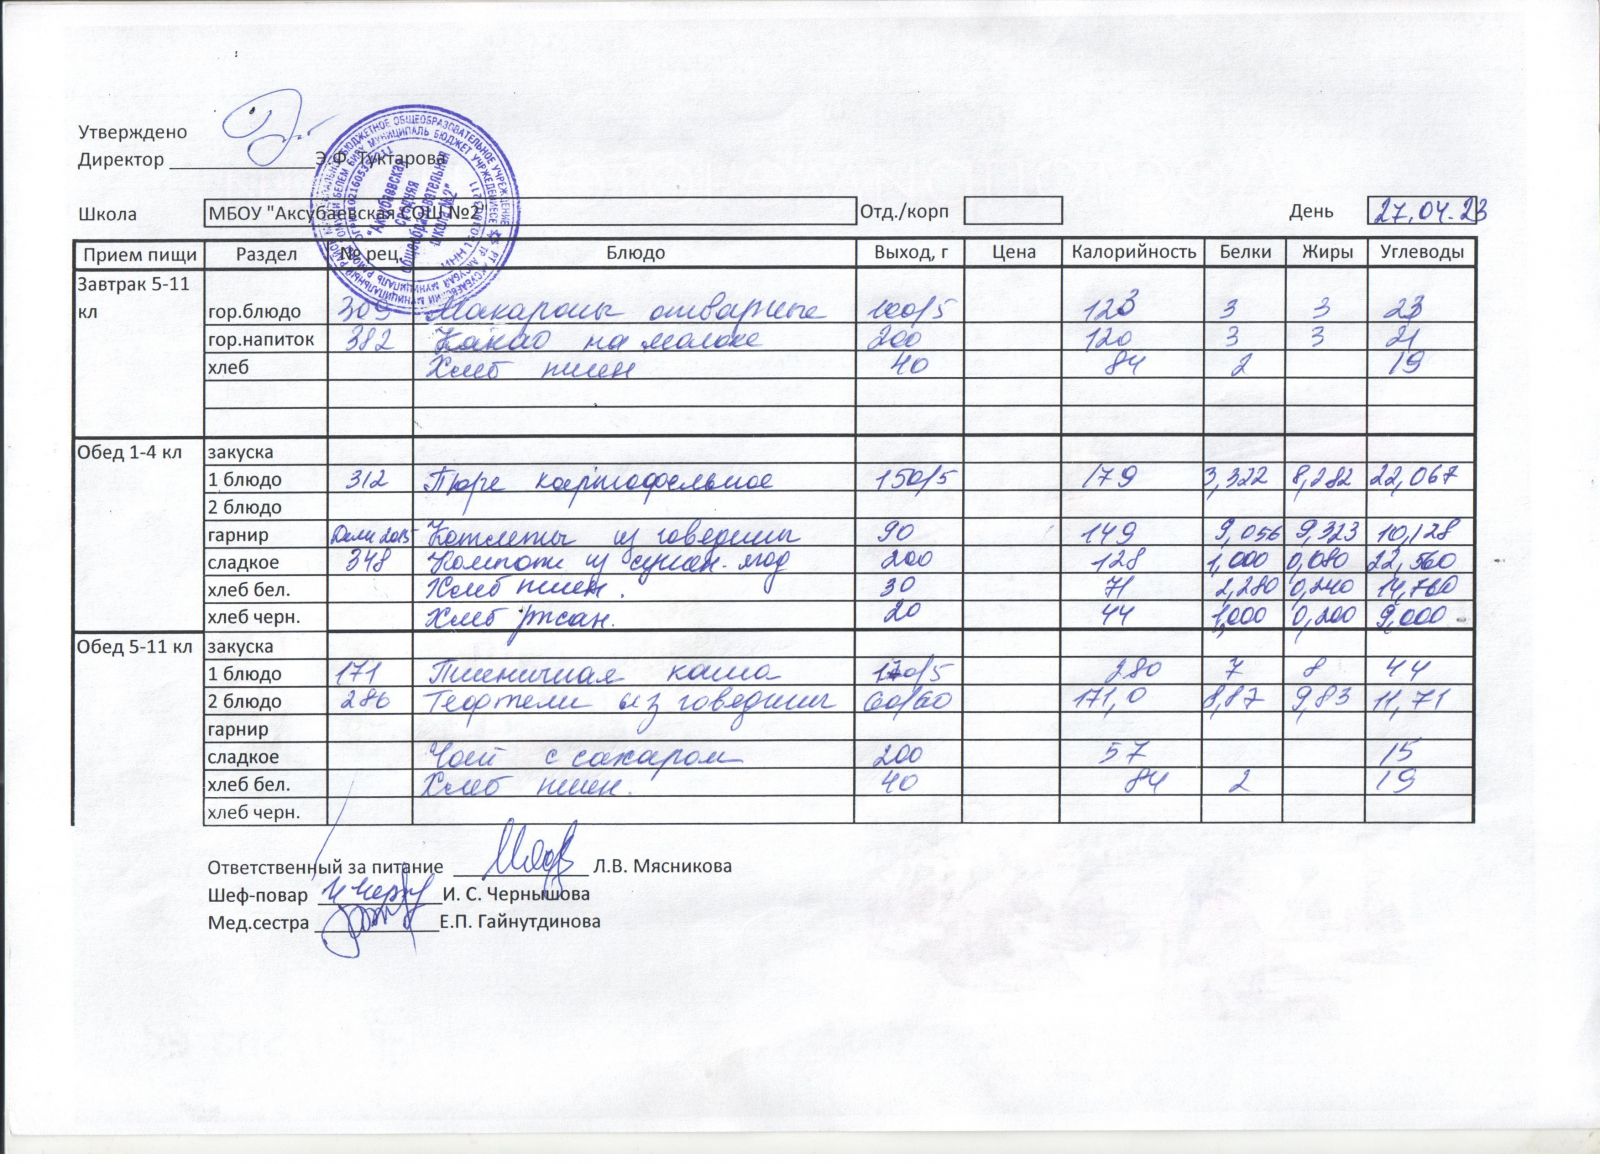 Утверждено
Директор Э.Ф. Туктарова
Школа МБОУ "Аксубаевская СОШ №2" Отд./корп День 27.04.23
"Аксубаевская средняя общеобразовательная школа №2"
Прием пищи Раздел № рец. Блюдо Выход, г Цена Калорийность Белки Жиры Углеводы
Завтрак 5-11 кл гор.блюдо 309 Макароны отварные 100/5 123 3 3 23
гор.напиток 382 Какао на молоке 200 120 3 3 21
хлеб Хлеб пшен 40 84 2 19
Обед 1-4 кл закуска
1 блюдо 312 Пюре картофельное 150/5 179 3,322 8,282 22,067
2 блюдо
гарнир Дели 2015 Котлеты из говядины 90 149 9,056 9,323 10,128
сладкое 348 Компот из сушен. ягод 200 128 1,000 0,080 22,560
хлеб бел. Хлеб пшен. 30 71 2,280 0,240 14,760
хлеб черн. Хлеб ржан. 20 44 1,000 0,200 9,000
Обед 5-11 кл закуска
1 блюдо 171 Пшеничная каша 170/5 280 7 8 44
2 блюдо 286 Тефтели из говядины 60/60 171,0 8,87 9,83 11,71
гарнир
сладкое Чай с сахаром 200 57 15
хлеб бел. Хлеб пшен. 40 84 2 19
хлеб черн.
Ответственный за питание Л.В. Мясникова
Шеф-повар И. С. Чернышова
Мед.сестра Е.П. Гайнутдинова